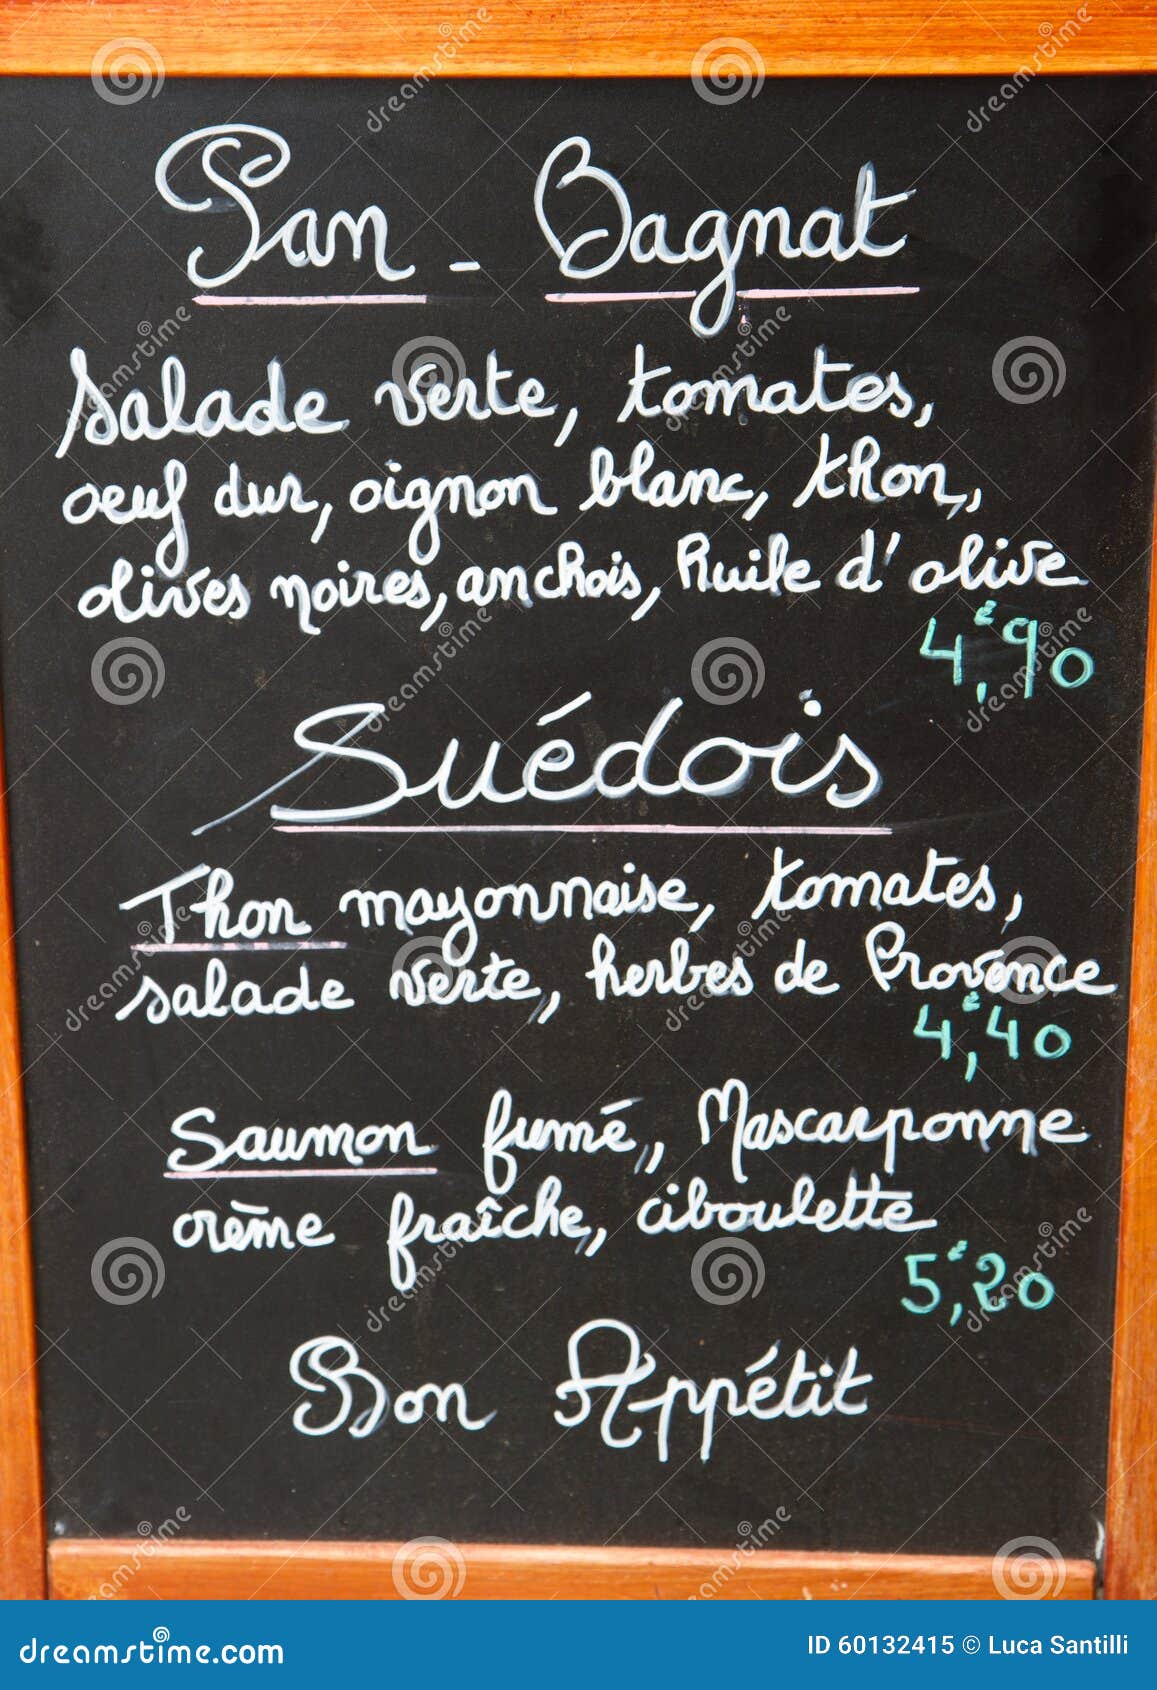 Pan-Bagnat
Salade verte, tomates,
oeuf dur, oignon blanc, thon,
olives noires, anchois, huile d'olive
4,€90
Suédois
Thon mayonnaise, tomates,
salade verte, herbes de Provence
4,€40
Saumon fumé, Mascarponne
crème fraîche, ciboulette
5,€20
Bon Appétit
dreamstime.com
ID 60132415 © Luca Santilli